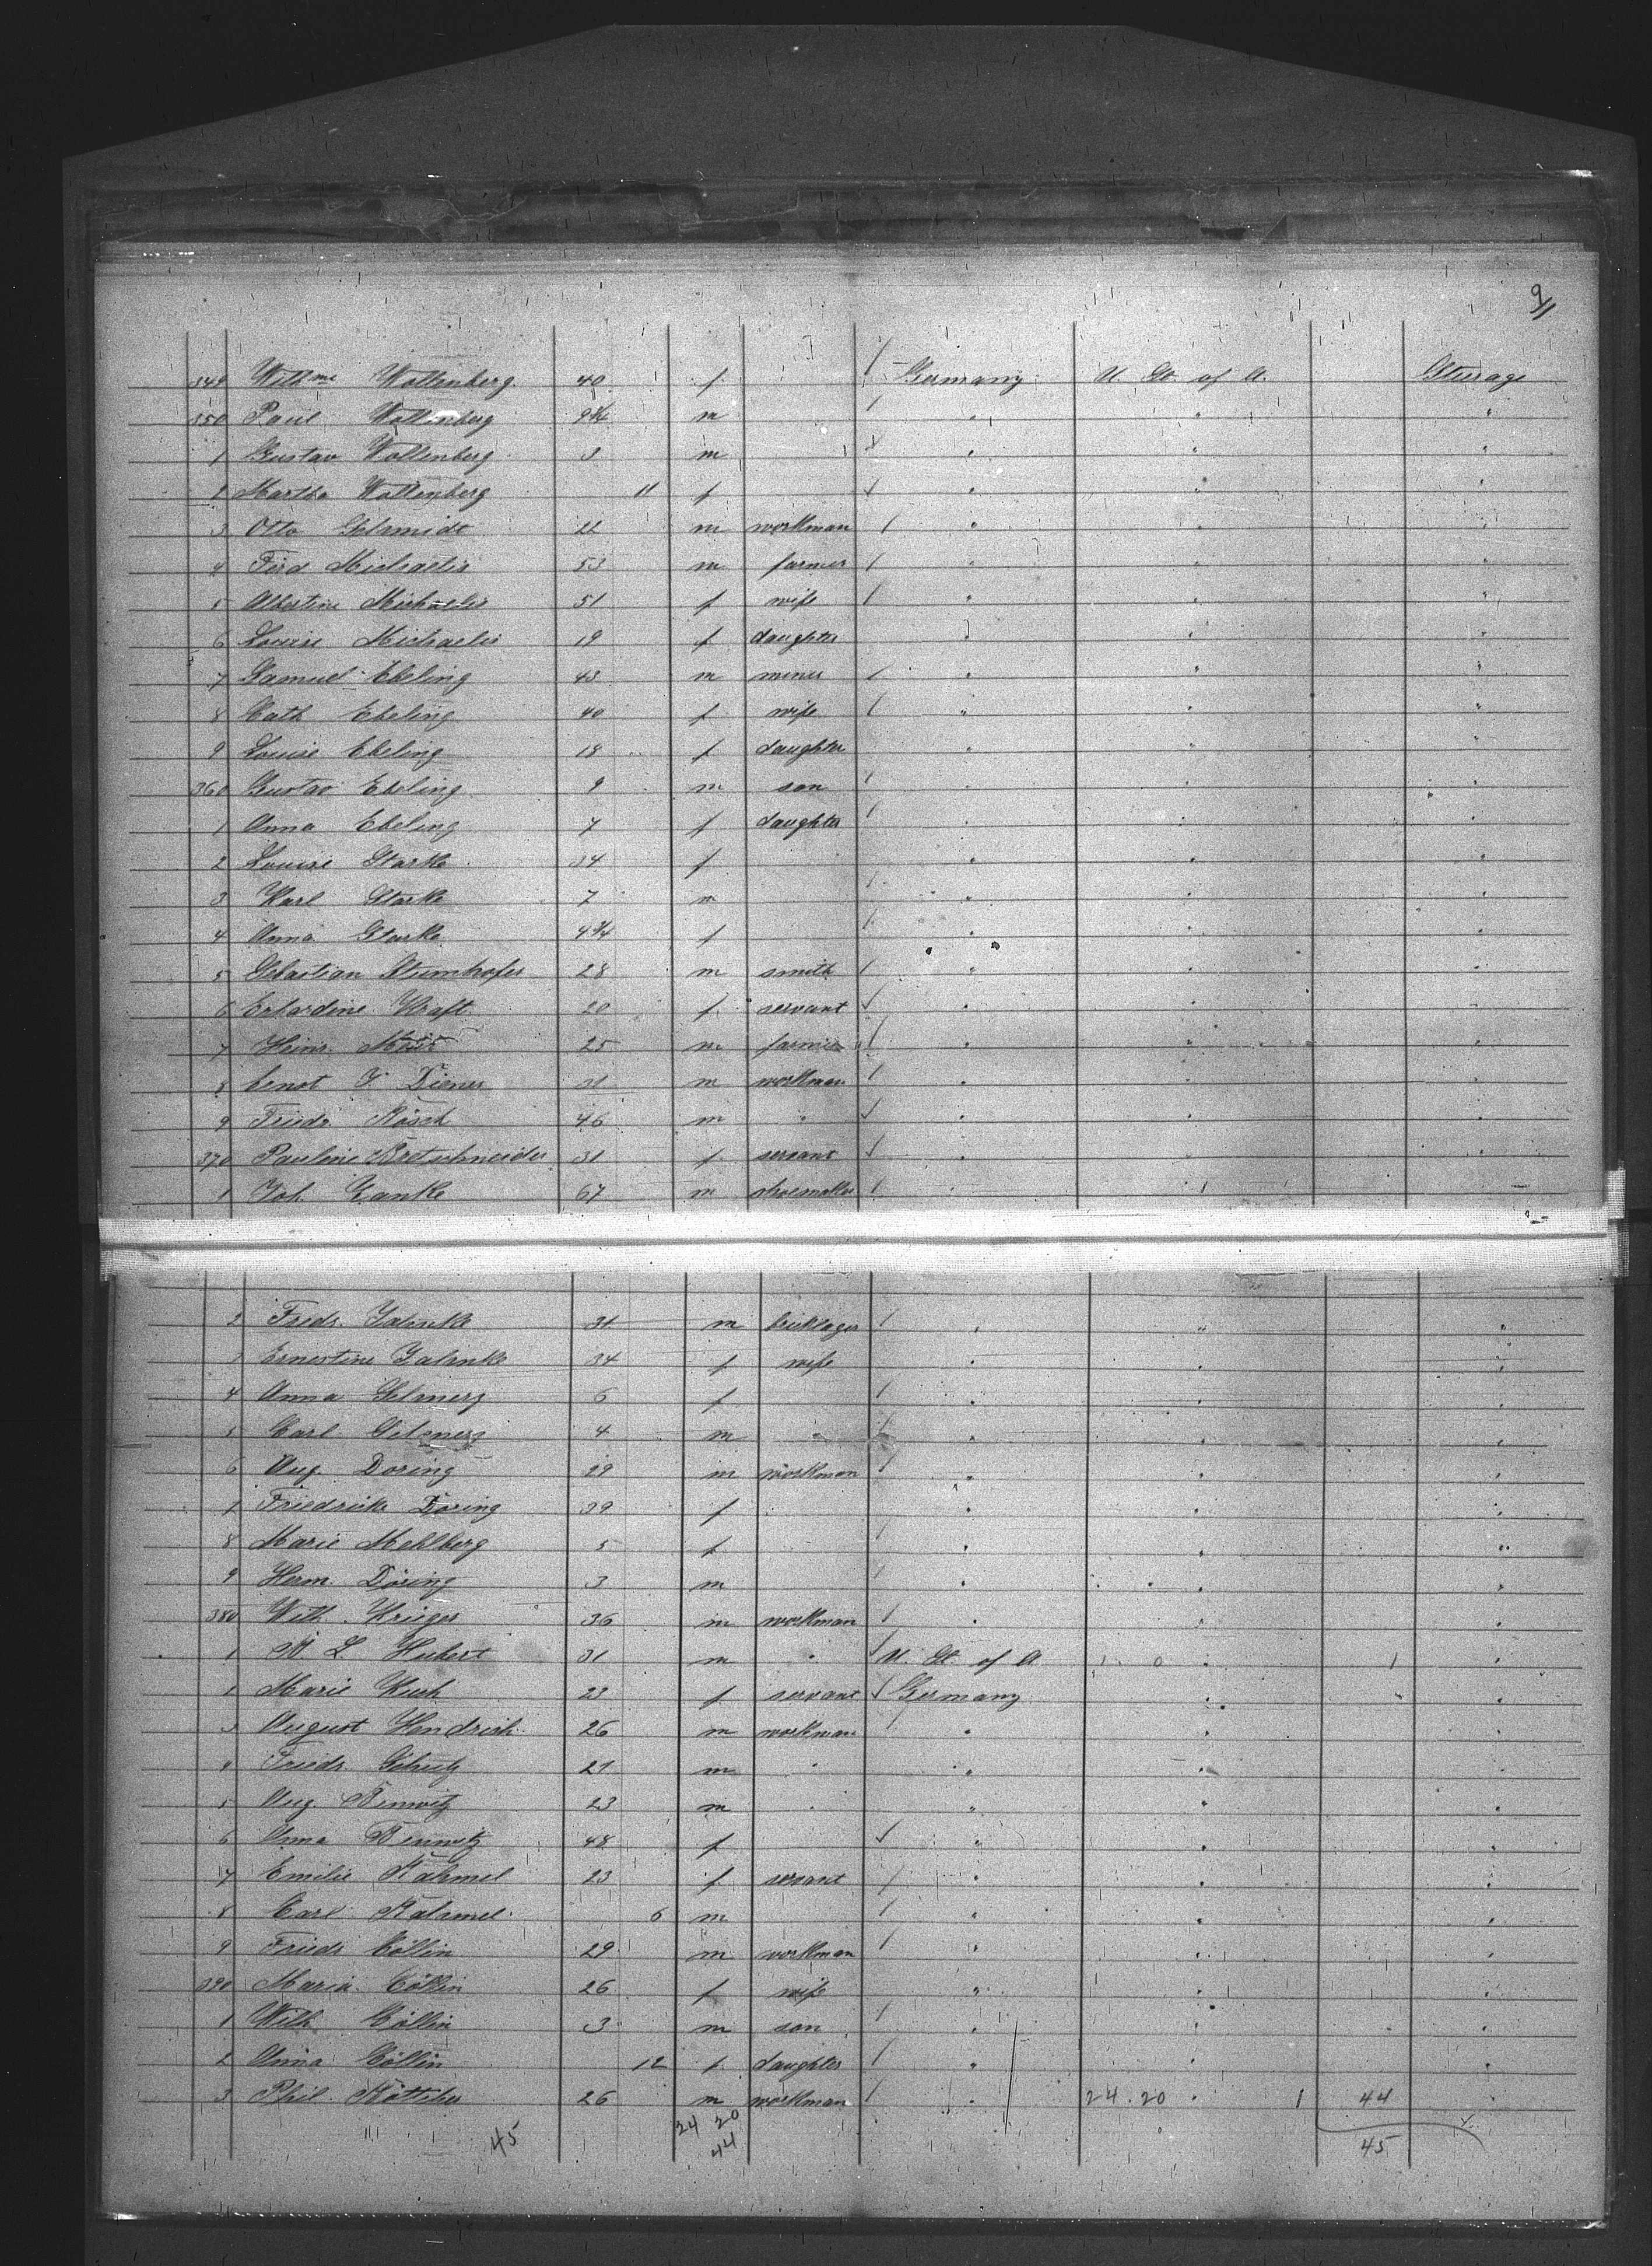 9
349 Wilhme Wollenberg 40 f Germany U. St. of A. Steerage
350 Paul Wollenberg 9¾ m " " "
1 Gustav Wollenberg 3 m " " "
2 Martha Wollenberg 11 f " " "
3 Otto Schmidt 22 m workman " " "
4 Ferd Michaelis 53 m farmer " " "
5 Albertine Michaelis 51 f wife " " "
6 Louise Michaelis 19 f daughter " " "
7 Samuel Ebeling 43 m miner " " "
8 Cath Ebeling 40 f wife " " "
9 Louise Ebeling 18 f daughter " " "
360 Gustav Ebeling 9 m son " " "
1 Anna Ebeling 7 f daughter " " "
2 Louise Starke 34 f " " "
3 Karl Starke 7 m " " "
4 Anna Starke 4¾ f " " "
5 Sebastian Stumhofer 28 m smith " " "
6 Erhardine Kraft 20 f servant " " "
7 Heinr. 25 m farmer " " "
8 Ernst F. Diener 31 m workman " " "
9 Friedr Rösch 46 m " " " "
370 Pauline Bretschneider 31 f servant " " "
1 Joh Janke 67 m shoemaker " " "
2 Friedr. Jahnke 31 m bricklayer " " "
3 Ernestine Jahnke 34 f wife " " "
4 Anna 6 f " " "
5 Carl 4 m " " " "
6 Aug. Doring 29 m workman " " "
7 Friedricke Döring 39 f " " "
8 Marie Mehlberg 5 f " " "
9 Herm. Döring 3 m " " "
380 Wilh. Krieger 36 m workman " " "
1 L Hubert 31 m " U. St. of A 1 0 " 1 "
1 Marie Kuch 23 f servant Germany " " "
3 August Hendrich 26 m workman " " "
4 Friedr. Schulz 21 m " " " "
5 Aug. Bennwitz 23 m " " " "
6 Anna Bennwitz 48 f " " "
7 Emilie Rahmel 23 f servant " " "
8 Carl Rahmel 6 m " " "
9 Friedr Cöllin 29 m workman " " "
390 Maria Cöllin 26 f wife " " "
1 Wilh Cöllin 3 m son " " "
2 Anna Cöllin 12 f daughter " " "
3 Phil. Böttcher 26 m workman " 24.20 " 1 44 "
45 24 20 45
44